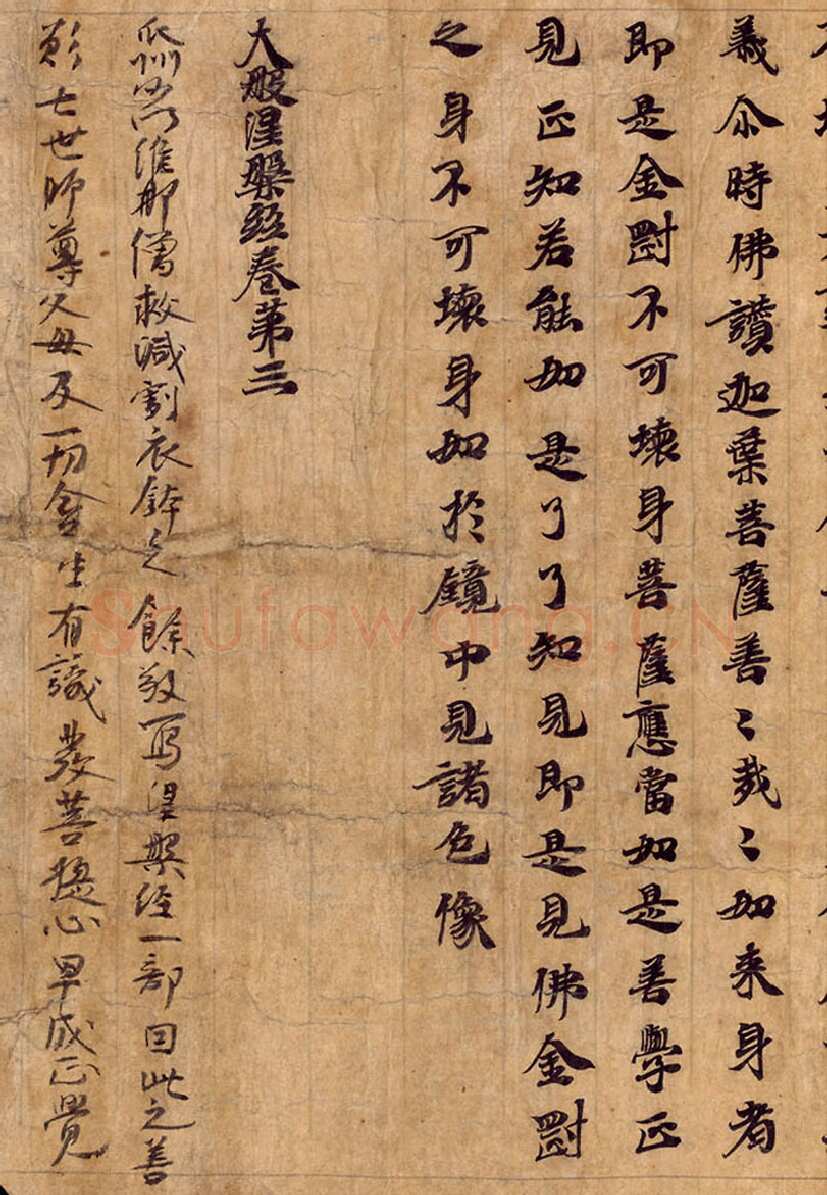 義尒時佛讚迦葉菩薩善〻哉〻如来身者
即是金剛不可壞身菩薩應當如是善學正
見正知若能如是了了知見即是見佛金剛
之身不可壞身如於鏡中見諸色像
大般涅槃經卷第三
瓜州沙門維那僧救減割衣鉢之餘敬寫涅槃經一部因此之善
願七世師尊父母及一切含生有識發菩提心早成正覺
Shufawang.CN